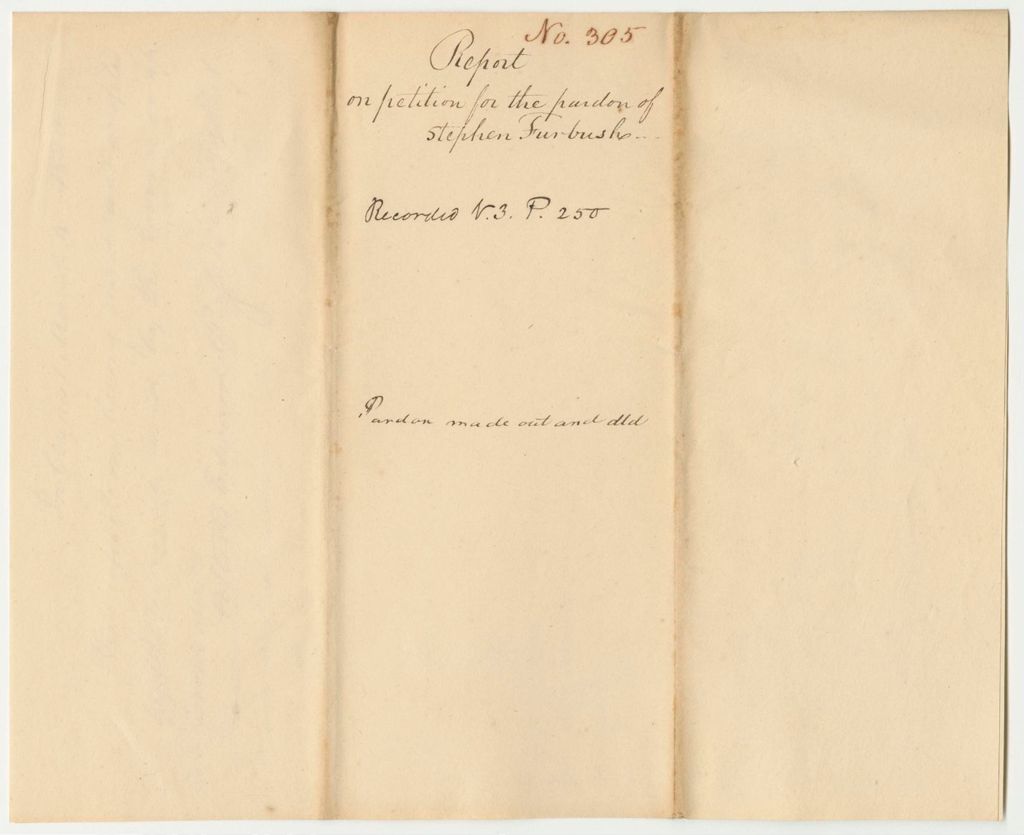 No. 305
Report
on petition for the pardon of
Stephen Furbush
Recorded V. 3. P. 250
Pardon made out and dld